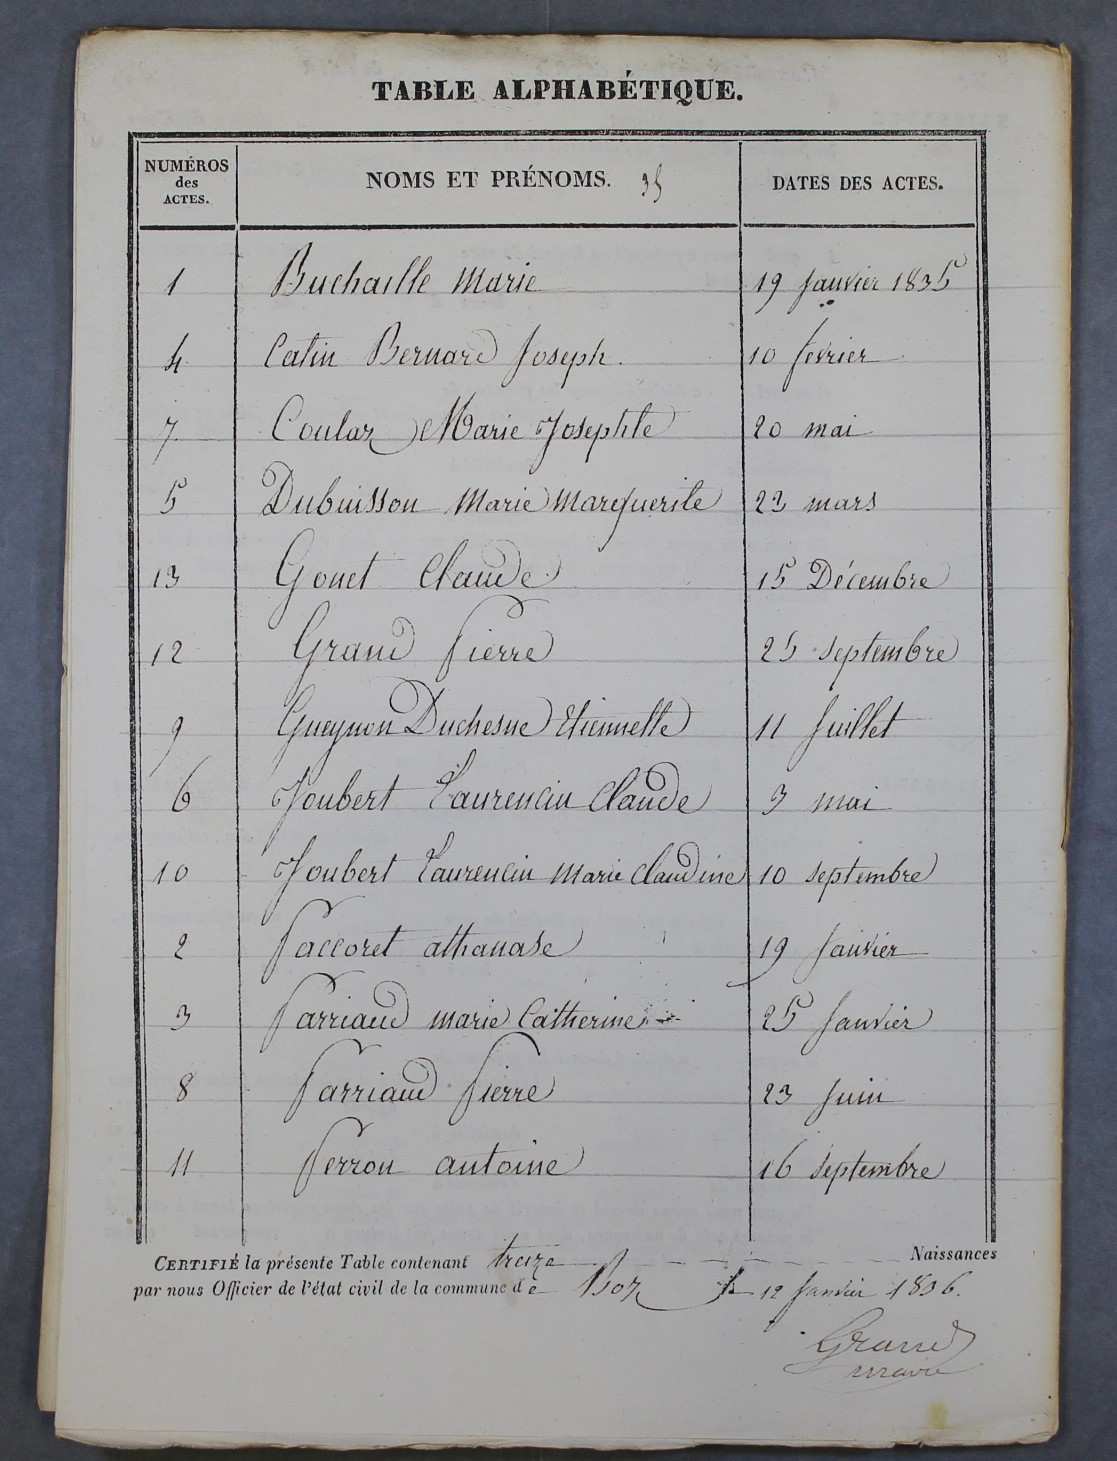 TABLE ALPHABÉTIQUE.
NUMÉROS des ACTES. NOMS ET PRÉNOMS. 35 DATES DES ACTES.
1 Buchaille Marie 19 Janvier 1835
4 Catin Bernard Joseph. 10 février
7 Coular Marie Josephte 20 mai
5 Dubuisson Marie Marguerite 23 mars
13 Gonet Claude 15 Décembre
12 Grand Pierre 25 septembre
9 Gueynon Duchesne Etiennette 11 Juillet
6 Joubert Laurencin Claude 3 mai
10 Joubert Laurencin marie Claudine 10 septembre
2 Paccoret athanase 19 Janvier
3 Parriaud marie Catherine 25 Janvier
8 Parriaud Pierre 23 Juin
11 Perron antoine 16 septembre
CERTIFIÉ la présente Table contenant treize Naissances
par nous Officier de l'état civil de la commune de Boz le 12 Janvier 1836.
Grand
maire